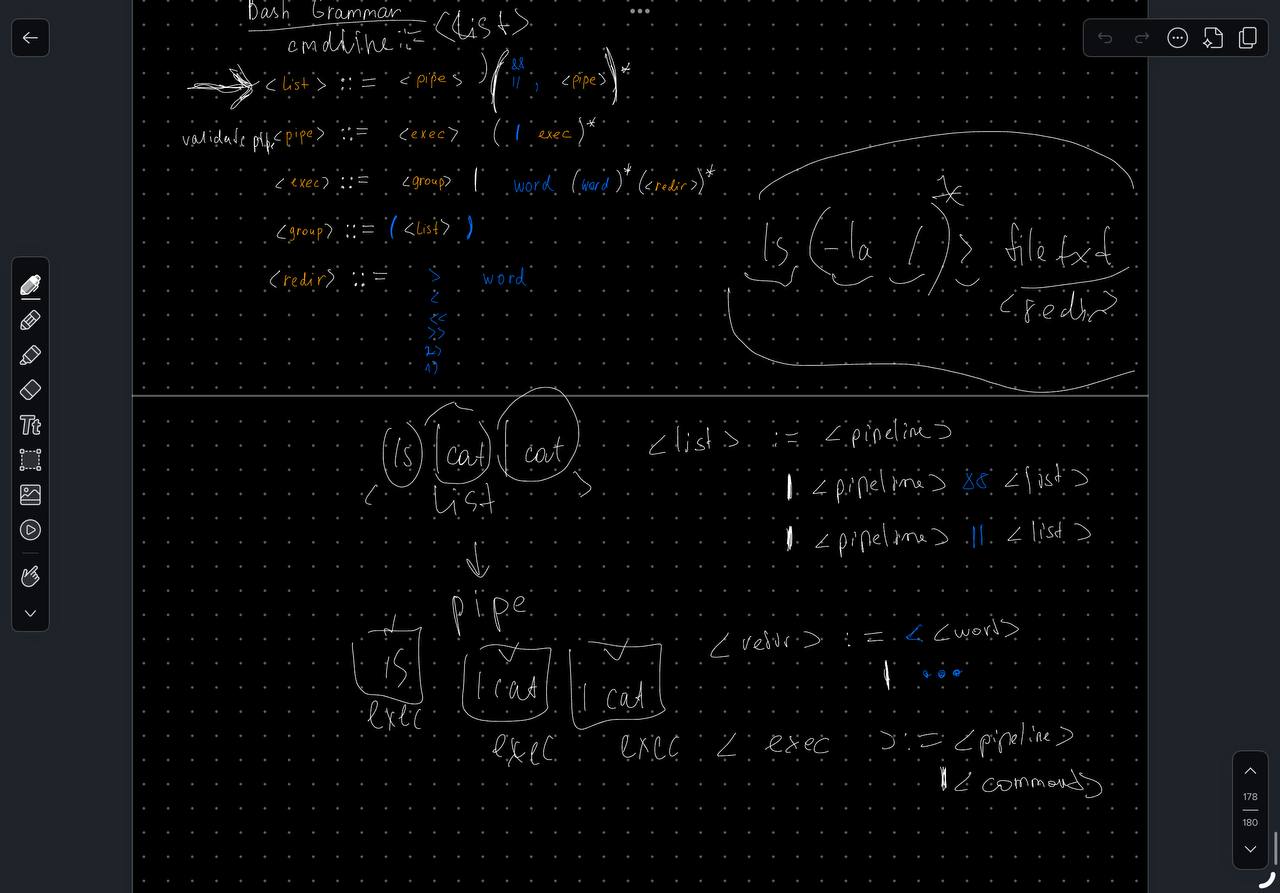 Bash Grammar
cmdline ::= <list>
<list> ::= <pipe> ( && || , <pipe> )*
validate pipe
<pipe> ::= <exec> ( | exec )*
<exec> ::= <group> | word (word)* (<redir>)*
<group> ::= ( <List> )
<redir> ::= > word
<
<<
>>
2>
1>
ls ( -la / )* > file txt
<redir>
ls cat cat
< list >
pipe
ls | cat | cat
exec exec exec
<list> := <pipeline>
| <pipeline> && <list>
| <pipeline> || <list>
<redir> := < <word>
| ...
< exec >:= <pipeline>
| < command>
Tt
178
180